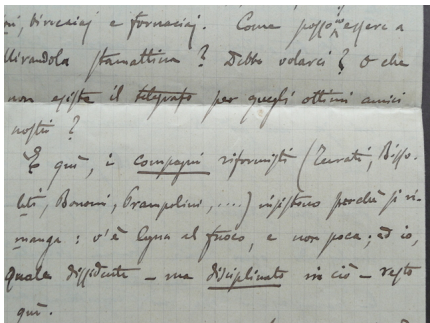 ni, birocciai e fornaciai. Come posso io essere a
Mirandola stamattina? Debbo volarci? O che
non esiste il telegrafo per quegli ottimi amici
nostri?
E qui, i compagni riformisti (Turati, Bisso-
lati, Bonomi, Prampolini, ....) insistono perchè si ri-
manga: v'è legna al fuoco, e non poca; ed io,
quale dissidente – ma disciplinato in ciò – resto
qui.